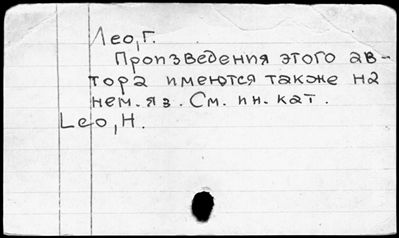 Лео, Г.
Произведения этого ав-
тора имеются также на
нем. яз. См. ин. кат.
Leo, H.